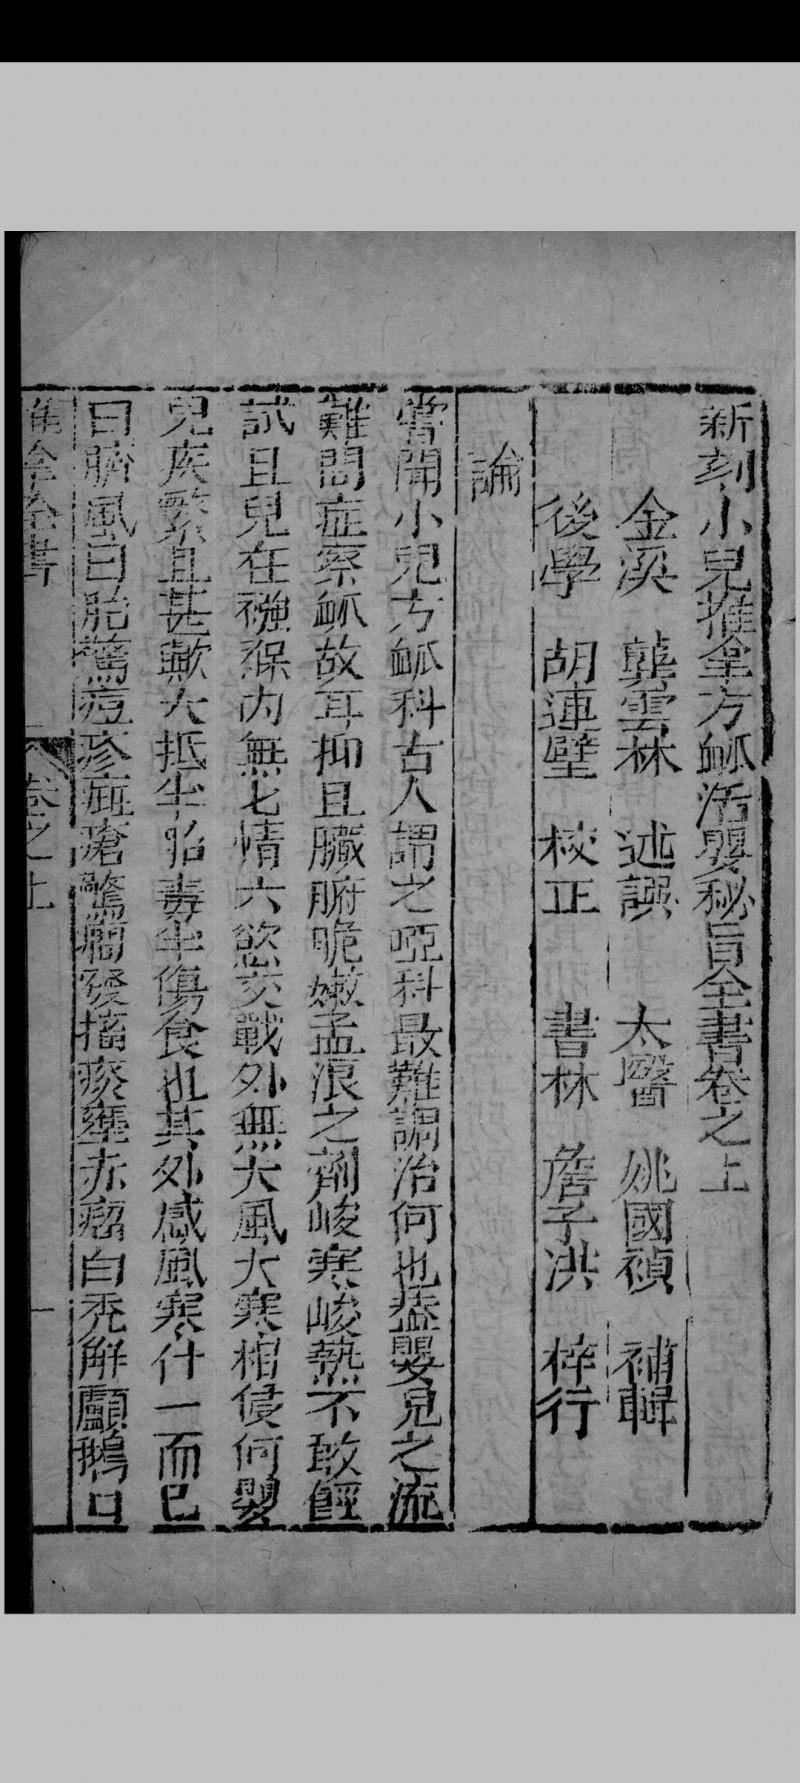 新刻小兒推拿方脉活嬰秘旨全書卷之上
金溪 龔雲林 述譔 太醫 姚國禎 補輯
後學 胡連璧 校正 書林 詹子洪 梓行
論
嘗聞小兒方脉科古人謂之啞科最難調治何也葢嬰兒之流
難問症察脉故耳抑且臟腑脆嫩孟浪之劑峻寒峻熱不敢輕
試且兒在襁褓內無七情六慾交戰外無大風大寒相侵何嬰
兒疾繁且甚歟大抵半胎毒半傷食也其外感風寒什一而已
曰臍風曰胎驚痘疹疵瘡驚癎發搐痰壅赤瘤白禿解顱鵝口
推拿全書 卷之上 一